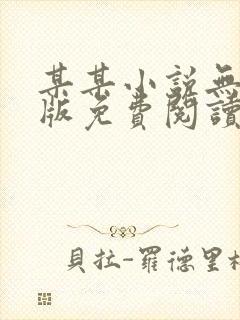 某某小說無
版免費閱讀
貝拉-羅德里